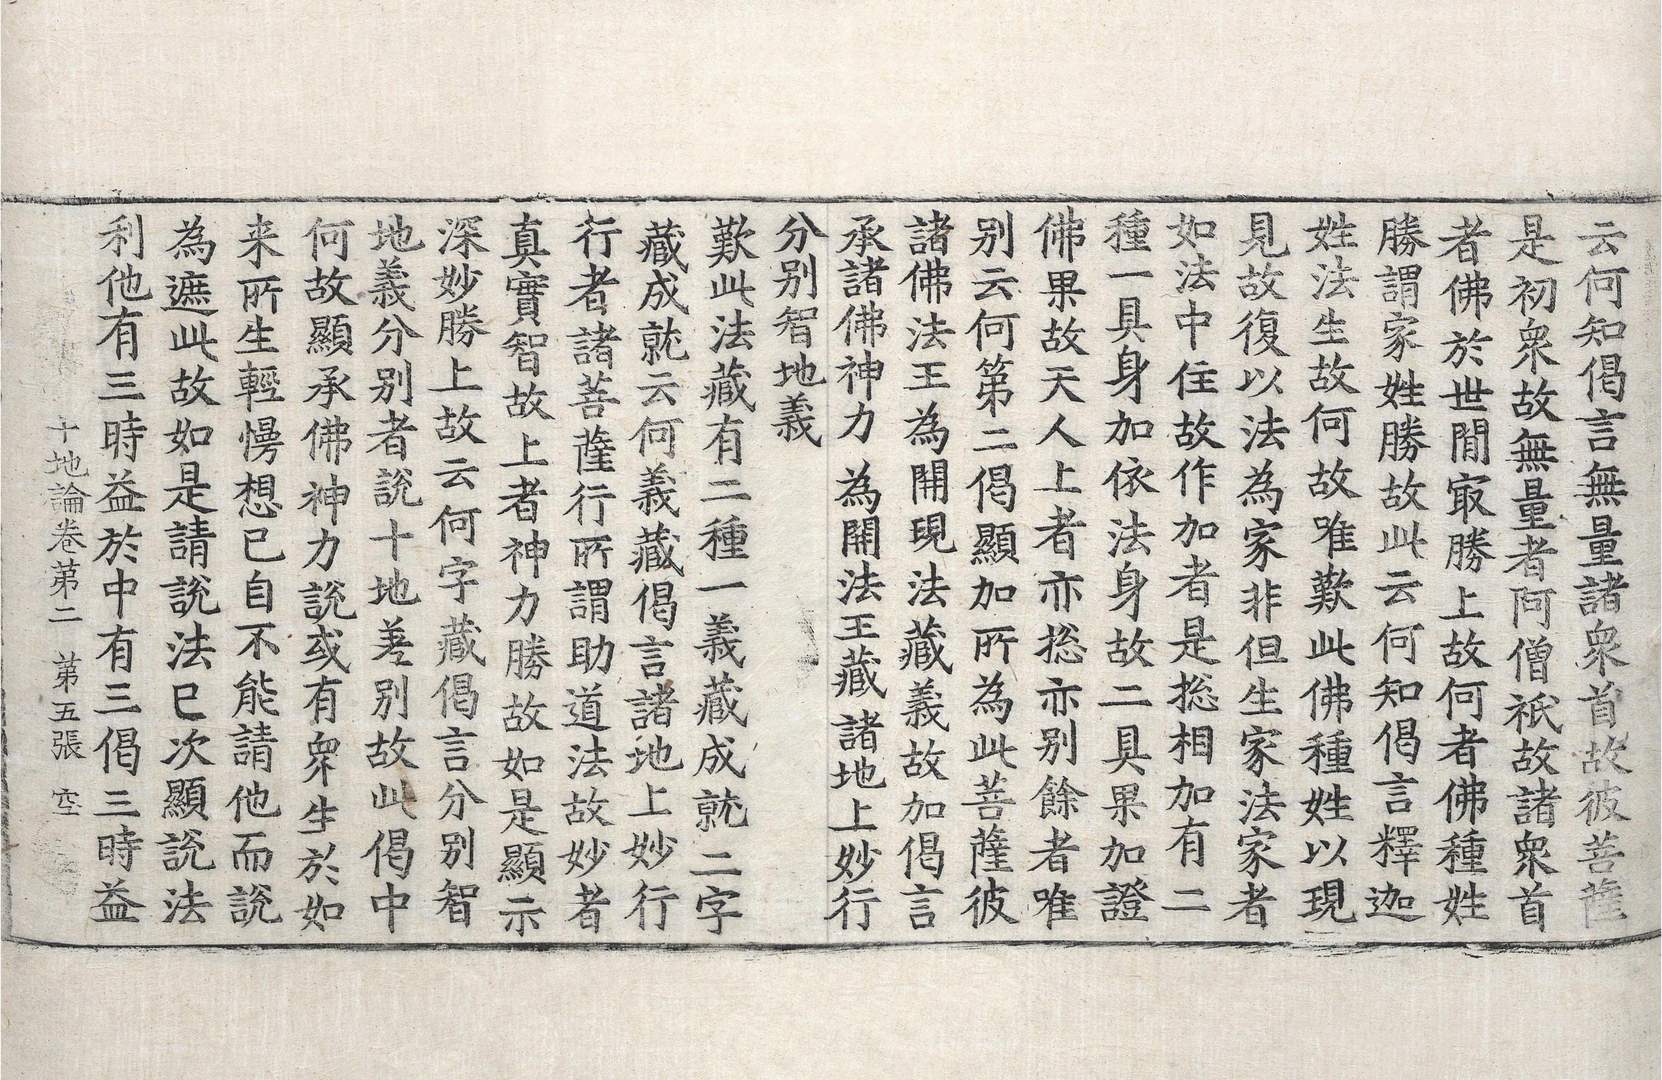 云何知偈言無量諸衆首故彼菩薩
是初衆故無量者阿僧祇故諸衆首
者佛於世間㝡勝上故何者佛種姓
勝謂家姓勝故此云何知偈言釋迦
姓法生故何故唯歎此佛種姓以現
見故復以法為家非但生家法家者
如法中住故作加者是捴相加有二
種一具身加依法身故二具果加證
佛果故天人上者亦捴亦別餘者唯
別云何第二偈顯加所為此菩薩彼
諸佛法王為開現法藏義故加偈言
承諸佛神力 為開法王藏 諸地上妙行
分別智地義
歎此法藏有二種一義藏成就 二字
藏成就云何義藏偈言諸地上妙行
行者諸菩薩行所謂助道法故妙者
真實智故上者神力勝故如是顯示
深妙勝上故云何字藏偈言分別智
地義分別者說十地差別故此偈中
何故顯承佛神力說或有衆生於如
来所生輕慢想已自不能請他而說
為遮此故如是請說法已次顯說法
利他有三時益於中有三偈三時益
十地論卷第二 第五張 空